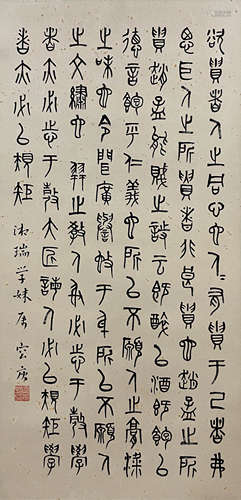 欲貴者人之同心也人人有貴于己者弗
思耳人之所貴者非良貴也趙孟之所
貴趙孟能賤之詩云既醉以酒既飽以
德言飽乎仁義也所以不願人之膏粱
之味也令聞廣譽施于身所以不願人
之文繡也 羿之教人射必志于彀學
者亦必志于彀大匠誨人必以規矩學
者亦必以規矩 湘瑞学妹属 容庚